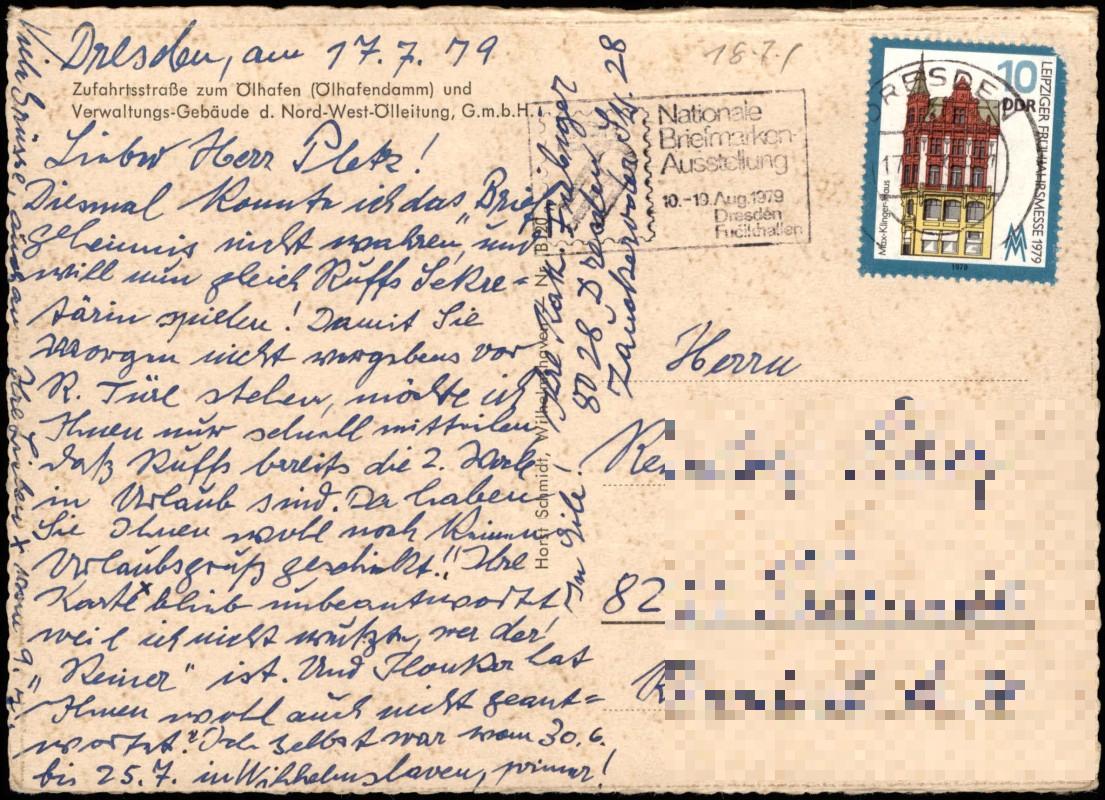 Dresden, am 17.7.79
Zufahrtsstraße zum Ölhafen (Ölhafendamm) und
Verwaltungs-Gebäude d. Nord-West-Ölleitung, G.m.b.H.
Lieber Herr Pletz!
Diesmal konnte ich das „Brief
geheimnis nicht wahren, und
will nun gleich Ruffs Sekre=
tärin spielen! Damit Sie
Morgen nicht vergebens vor
R. Türe stehen, möchte ich
Ihnen nur schnell mitteilen
daß Ruffs bereits die 2. Woche
in Urlaub sind. Da haben
Sie Ihnen wohl noch keinen
Urlaubsgruß geschickt!! Ihre
Karte x blieb unbeantwortet
weil ich nicht wußte, wer der
„Reiner" ist. Und hat
Ihnen wohl auch nicht geant=
wortet? Ich selbst war vom 30.6.
bis 25.7. in Wilhelmshaven, prima!
Viele Grüße, auch an Ihre Lieben x vom 9.7.
Ihre Kath.
8028 Dresden
28
In Eile!
Horst Schmidt, Wilhelmshaven
Nr.
Bild
18.7.
Nationale
Briefmarken-
Ausstellung
10.-19. Aug. 1979
Dresden
Fučikhallen
DRESDEN
17
10
DDR
LEIPZIGER FRÜHJAHRSMESSE 1979
Max-Klinger-Haus
1979
Herrn
82